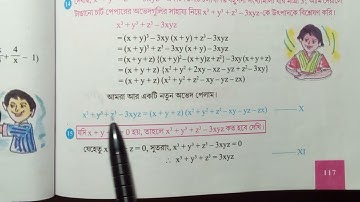 উপরের ছটি পেপারের অভেদগুলির সাহায্য নিয়ে x³ + y³ + z³ – 3xyz-কে উৎপাদকে বিশ্লেষণ করি।
x³ + y³ + z³ – 3xyz
= (x + y)³ – 3xy (x + y) + z³ – 3xyz
= (x + y)³ + z³ – 3xy(x + y) – 3xyz
= (x + y + z) {(x + y)² – (x + y)z + z²} – 3xy(x + y + z)
= (x + y + z) (x² + y² + 2xy – xz – yz + z² – 3xy)
= (x + y + z) (x² + y² + z² – xy – yz – zx)
আমরা আর একটি নতুন অভেদ পেলাম।
x³ + y³ + z³ – 3xyz = (x + y + z) (x² + y² + z² – xy – yz – zx) X
15 যদি x + y + z = 0 হয়, তাহলে x³ + y³ + z³ – 3xyz কত হবে দেখি।
যেহেতু x + y + z = 0, সুতরাং, x³ + y³ + z³ – 3xyz = 0
∴ x³ + y³ + z³ = 3xyz XI
117